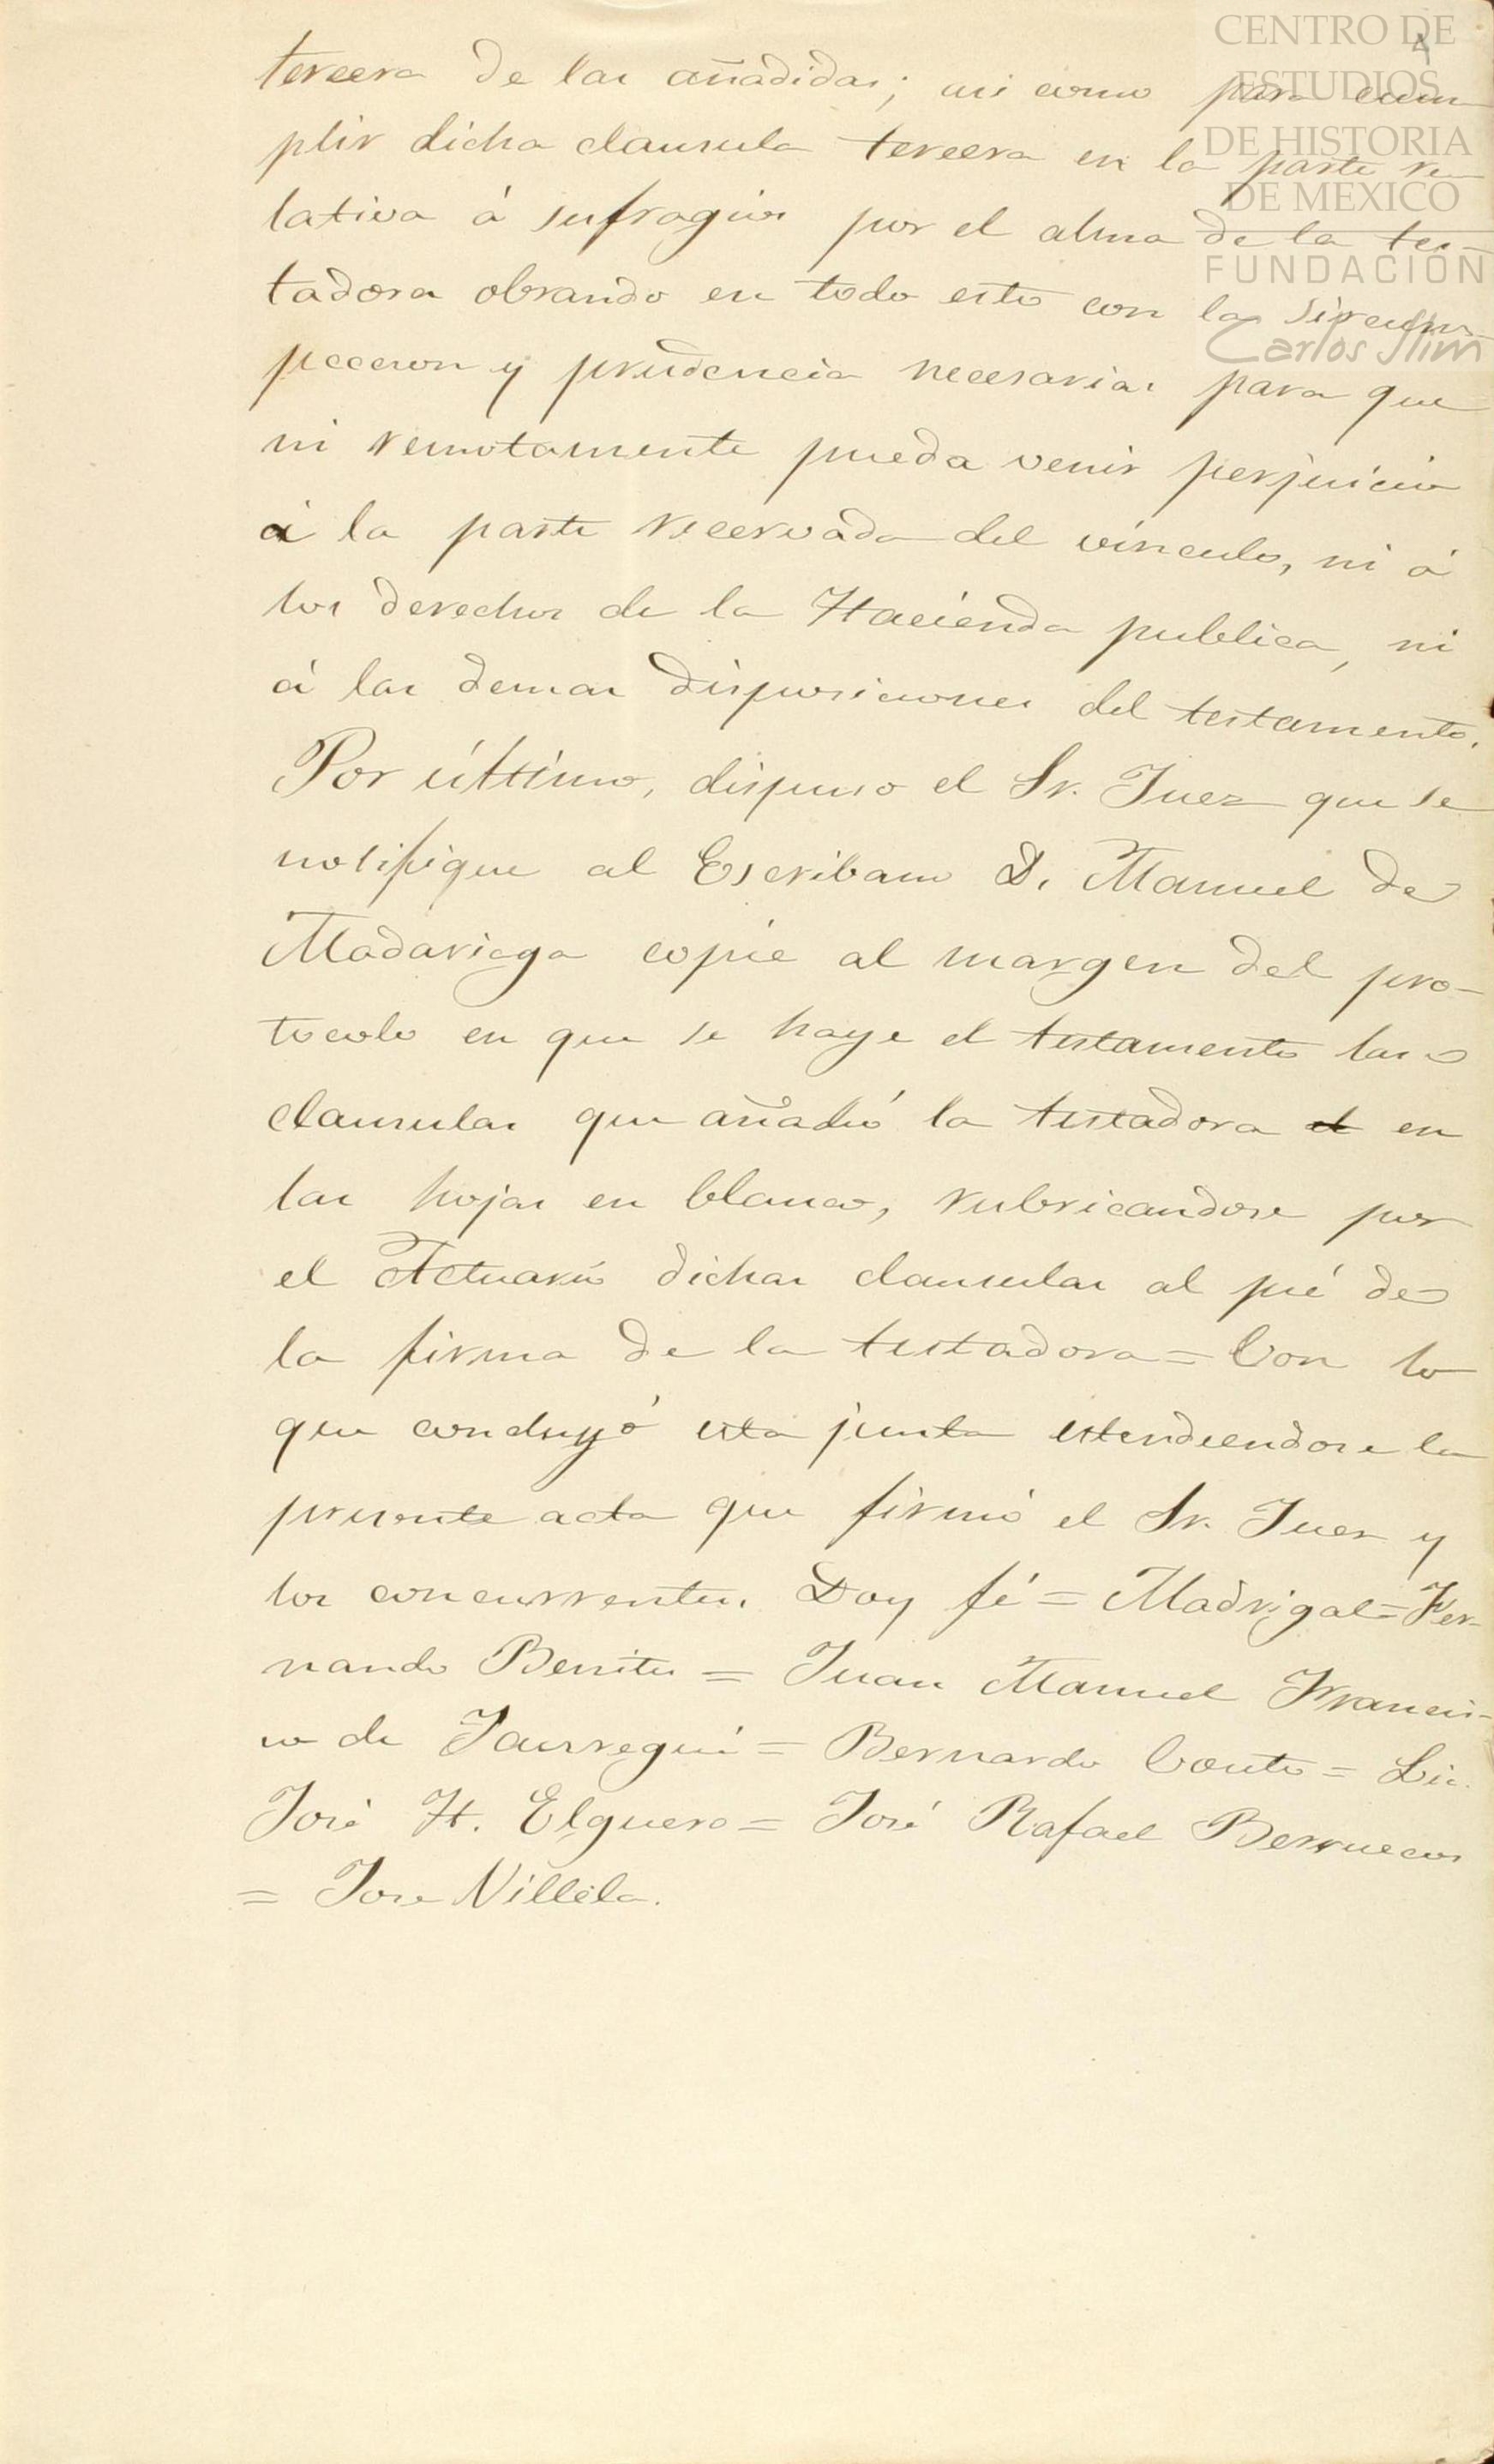 CENTRO DE
ESTUDIOS
DE HISTORIA
DE MEXICO
FUNDACIÓN
Carlos Slim
4
tercera de las añadidas; asi como para cum
plir dicha clausula tercera en la parte re-
lativa á sufragios por el alma de la tes-
tadora obrando en todo esto con la sircuns-
peccion y prudencia necesarias para que
ni remotamente pueda venir perjuicio
á la parte recervada del vínculo, ni á
los derechos de la Hacienda publica, ni
á las demas disposiciones del testamento.
Por último, dispuso el Sr. Juez que se
notifique al Escribano D. Manuel de
Madariaga copie al margen del pro-
tocolo en que se haye el testamento las
clausulas que añadió la testadora en
las hojas en blanco, rubricandose por
el Actuario dichas clausulas al pié de
la firma de la testadora = Con lo
que concluyó esta junta estendiendose la
presente acta que firmó el Sr. Juez y
los concurrentes. Doy fé = Madrigal = Fer-
nando Benites = Juan Manuel Francis-
co de Jaurregui = Bernardo Couto = Lic.
José H. Elguero = José Rafael Berruecos
= Jose Villela.